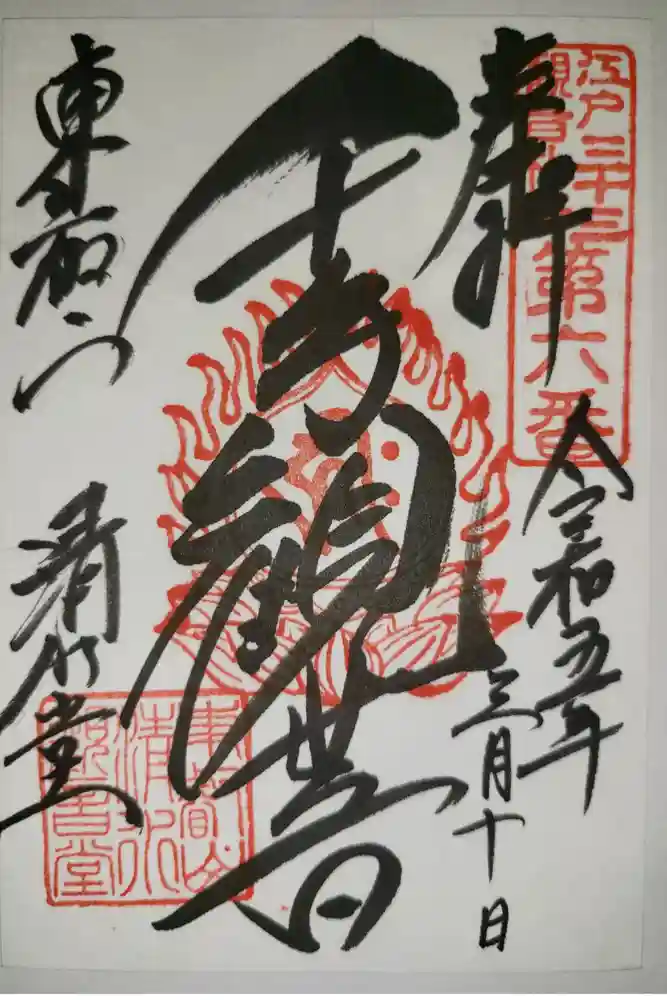 奉拝
江戸三十三
観音札所
第六番
令和五年
三月十日
千手観世音
東叡山
清水堂
東叡山
清水
観音堂